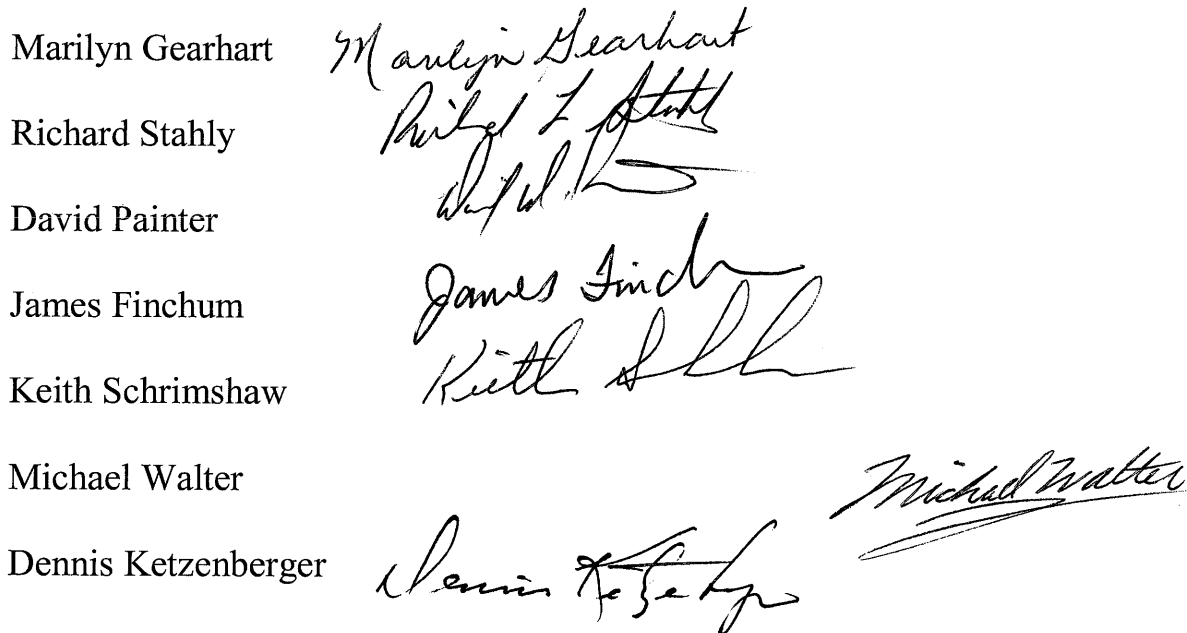 Marilyn Gearhart Marilyn Gearhart
Richard Stahly Richard L Stahly
David Painter David W.
James Finchum James Finch
Keith Schrimshaw Keith
Michael Walter Michael Walter
Dennis Ketzenberger Dennis Ketzenberger